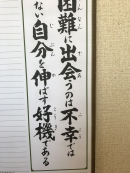 困難に出会うのは不幸では
ない自分を伸ばす好機である